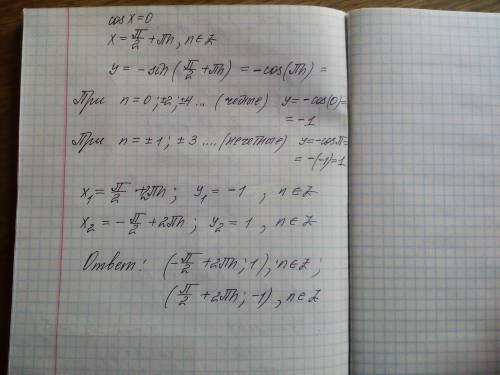 cos x = 0
x = π/2 + πn, n ∈ Z
y = - sin (π/2 + πn) = - cos(πn) =
При n = 0; ±2; ±4 ... (четные) y = -cos(0) =
= -1
При n = ±1; ±3 .... (нечетные) y = -cosπ =
= -(-1) = 1
x₁ = π/2 + 2πn; y₁ = -1 , n ∈ Z
x₂ = - π/2 + 2πn; y₂ = 1 , n ∈ Z
Ответ: (- π/2 + 2πn; 1), n ∈ Z;
(π/2 + 2πn; -1), n ∈ Z